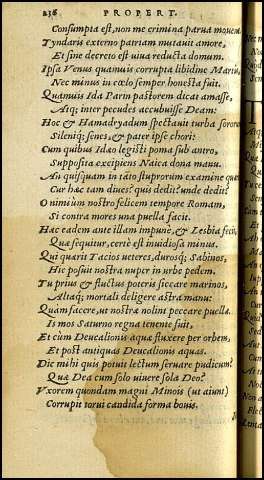 236 PROPERT.
Consumpta est, non me crimina parua mouent.
Tyndaris externo patriam mutauit amore,
Et sine decreto est uiua reducta domum.
Ipsa Venus quamuis corrupta libidine Martis,
Nec minus in cælo semper honesta fuit.
Quamuis Ida Parin pastorem dicat amasse,
Atq; inter pecudes accubuisse Deam:
Hoc & Hamadryadum spectauit turba sororum
Sileniq; senes, & pater ipse chori:
Cum quibus Idæo legisti poma sub antro,
Supposita excipiens Naica dona manu.
An quisquam in tāto stuprorum examine quærit
Cur hæc tam diues? quis dedit? unde dedit?
O nimium nostro felicem tempore Romam,
Si contra mores una puella facit.
Hæc eadem ante illam impune, & Lesbia fecit,
Quæ sequitur, certè est inuidiosa minus.
Qui quærit Tacios ueteres, durosq; Sabinos,
Hic posuit nostra nuper in urbe pedem.
Tu prius & fluctus poteris siccare marinos,
Altaq; mortali deligere astra manu:
Quam facere, ut nostræ nolint peccare puellæ.
Is mos Saturno regna tenente fuit.
Et cum Deucalionis aquæ fluxere per orbem,
Et post antiquas Deucalionis aquas.
Dic mihi quis potuit lectum seruare pudicum?
Quæ Dea cum solo uiuere sola Deo?
Vxorem quondam magni Minois (ut aiunt)
Corrupit torui candida forma bouis.